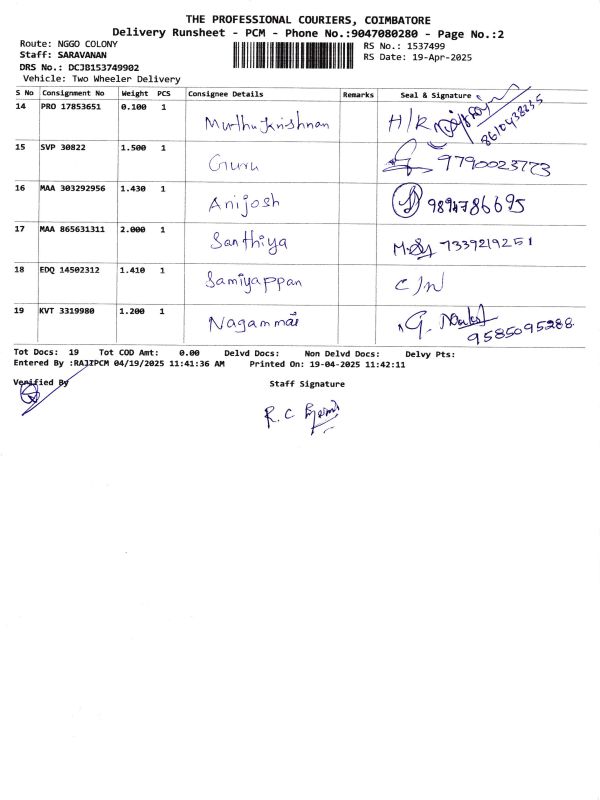 THE PROFESSIONAL COURIERS, COIMBATORE
Delivery Runsheet - PCM - Phone No.:9047080280 - Page No.:2
Route: NGGO COLONY
RS No.: 1537499
Staff: SARAVANAN
RS Date: 19-Apr-2025
DRS No.: DCJB153749902
Vehicle: Two Wheeler Delivery
S No Consignment No Weight PCS Consignee Details Remarks Seal & Signature
14 PRO 17853651 0.100 1 Muthu Krishnan H/R 8610438235
15 SVP 30822 1.500 1 Guru 9790023773
16 MAA 303292956 1.430 1 Anijosh 9894786695
17 MAA 865631311 2.000 1 Santhiya 7339219251
18 EDQ 14502312 1.410 1 Samiyappan C/N
19 KVT 3319980 1.200 1 Nagammai G. 9585095288
Tot Docs: 19 Tot COD Amt: 0.00 Delvd Docs: Non Delvd Docs: Delvy Pts:
Entered By :RAJIPCM 04/19/2025 11:41:36 AM Printed On: 19-04-2025 11:42:11
Verified By Staff Signature
R. C